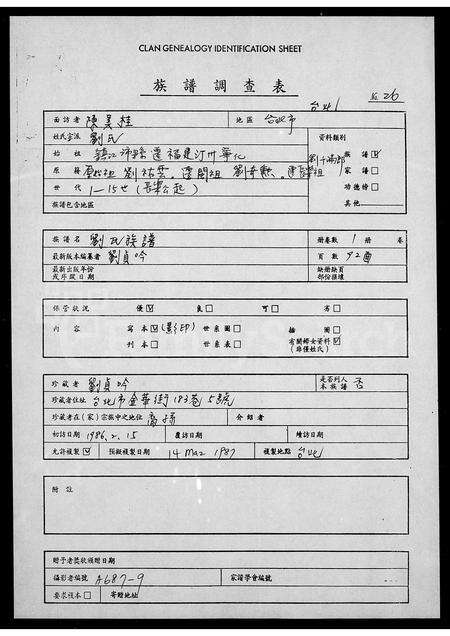 CLAN GENEALOGY IDENTIFICATION SHEET
族譜調查表
台北
26
面訪者 陳美桂 地區 台北市
姓氏宗派 劉氏 資料類別
始祖 鎮江沛縣遷福建汀州寧化 劉千海郎 族譜☑
原籍 家譜□
世代 1—15世 功德榜□
族譜包含地區 其他
族譜名 劉氏族譜 册卷數 1 册 卷
最新版本編纂者 劉貞吟 頁數 92面
最新出版年份
或序跋日期
缺册缺頁
部份損壞
保管狀況 優☑ 良□ 可□ 劣□
內容 寫本☑(影印) 世系圖□ 插圖□
刊本□ 世系表□ 有關婦女資料☑
(非僅姓氏)
珍藏者 劉貞吟 是否列入
本族譜 否
珍藏者住址 台北市金華街183巷5號
珍藏者在(家)宗族中之地位 裔孫 介紹者
初訪日期 1986.2.15 覆訪日期 續訪日期
允許複製☑ 預擬複製日期 14 Mar 1987 複製地點 台北
附註
贈予者獎狀頒贈日期
攝影者編號 A687-9 家譜學會編號
要求複本□ 寄贈地址